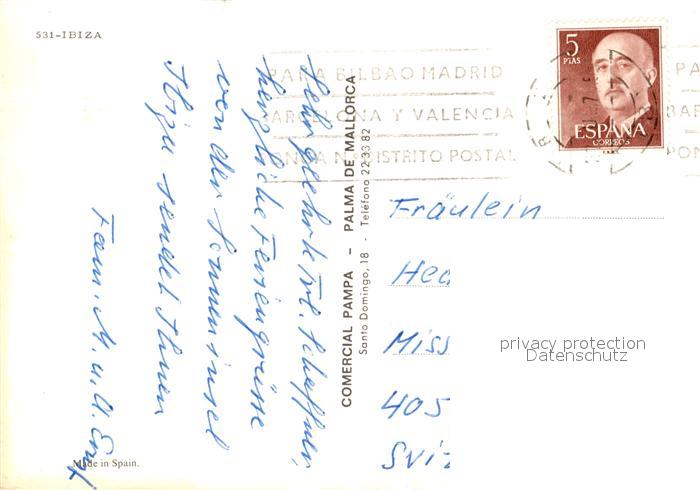 531-IBIZA
PARA BILBAO MADRID
BARCELONA Y VALENCIA
PONGA Nº DISTRITO POSTAL
5
PTAS
ESPAÑA
CORREOS
Sehr geehrte Frl.
herzliche Feriengrüsse
von der Sonneninsel
Ibiza sendet Ihnen
Fam. M. u. A. Ernst
COMERCIAL PAMPA – PALMA DE MALLORCA
Santo Domingo, 18 - Teléfono 22 33 82
Fräulein
Hed
Miss
405
Sviz
privacy protection
Datenschutz
Made in Spain.